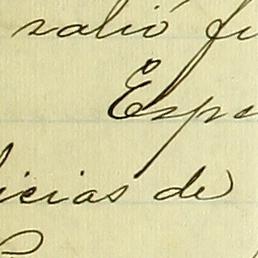 salió fu
Espe
icias de